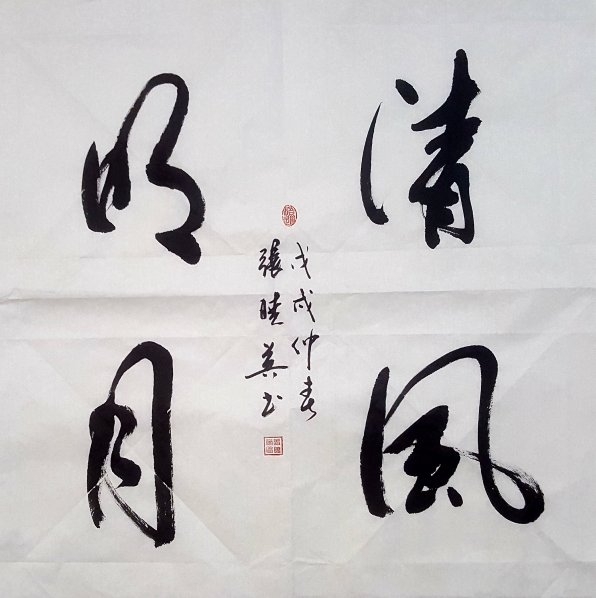 清風
明月
戊戌仲春
張英书